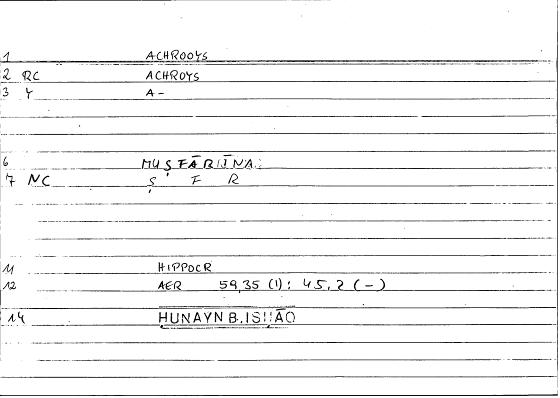 1 ACHROOYS
2 RC ACHROYS
3 Y A-
6 MUṢFĀRĪNA
7 NC Ṣ F R
11 HIPPOCR
12 AER 59,35 (1) : 45,2 (-)
14 HUNAYN B. ISḤĀQ